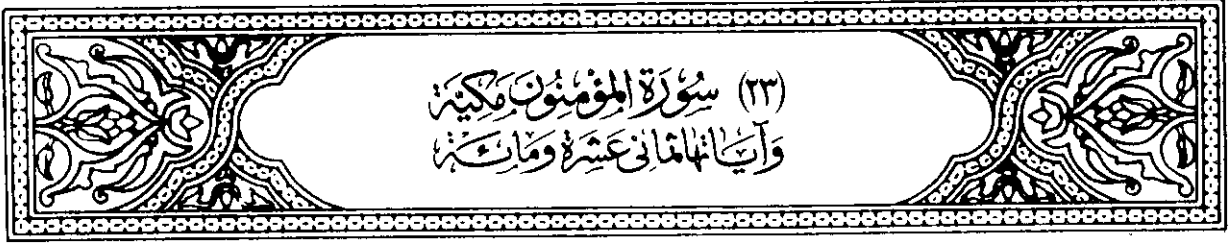 (٢٣) سُورَةُ المؤْمِنُونَ مَكيَّة
وَآيَاتهَا ثمَانى عَشَرَةَ وَمَائَة